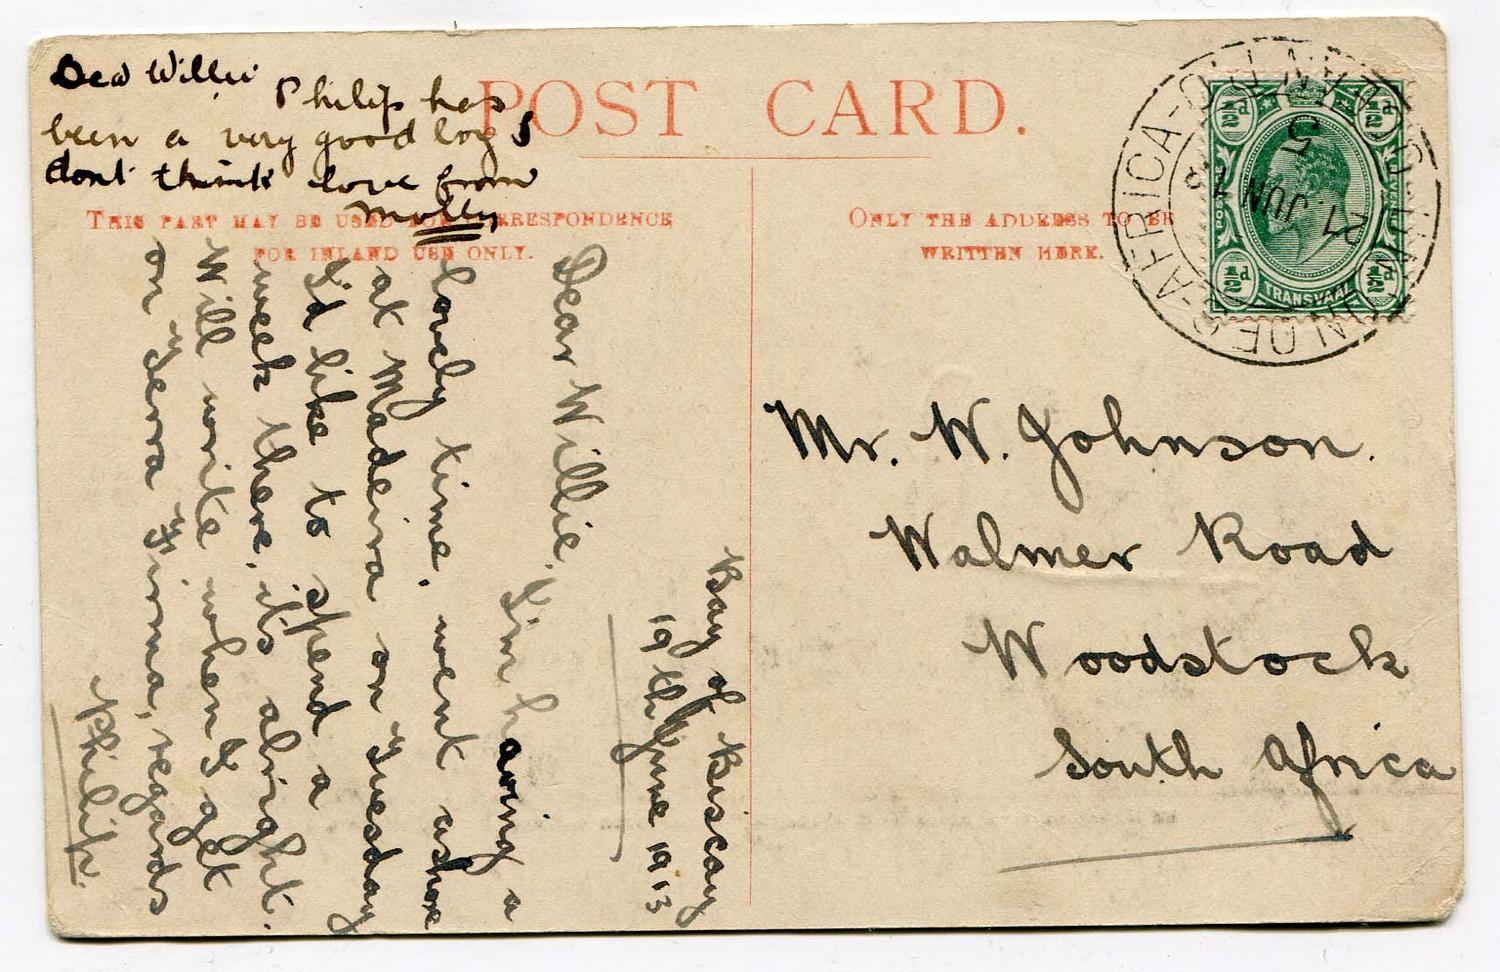 Dear Willie
Philip has
been a very good boy I
dont think love from
Molly
POST CARD.
THIS PART MAY BE USED FOR CORRESPONDENCE
FOR INLAND USE ONLY.
ONLY THE ADDRESS TO BE
WRITTEN HERE.
Bay of Biscay
19th June 1913
Dear Willie.
I'm having a
lovely time, went ashore
at Madeira on Tuesday
I'd like to spend a
week there, it's alright.
Will write when I get
on Terra Firma, regards
Philip.
Mr. W. Johnson.
Walmer Road
Woodstock
South Africa
½d ½d
½d ½d
POSTAGE REVENUE
TRANSVAAL
5
21 JUN 13